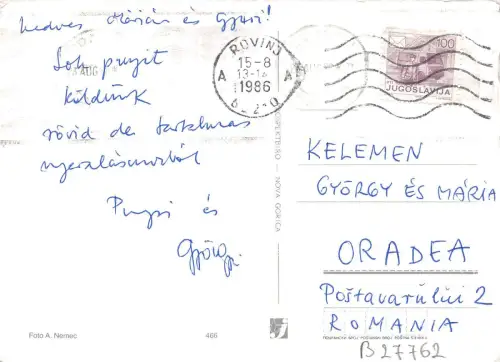 Kedves Márján és Gyuri!
Sok puszit
küldünk
rövid de tartalmas
nyaralásunkból
Puspi és
Györgyi
ROVINJ
15-8
1986
A A
100
JUGOSLAVIJA
KELEMEN
GYÖRGY ÉS MÁRIA
ORADEA
Poştavarului 2
ROMANIA
B 27762
NOVA GORICA
Foto A. Nemec
466